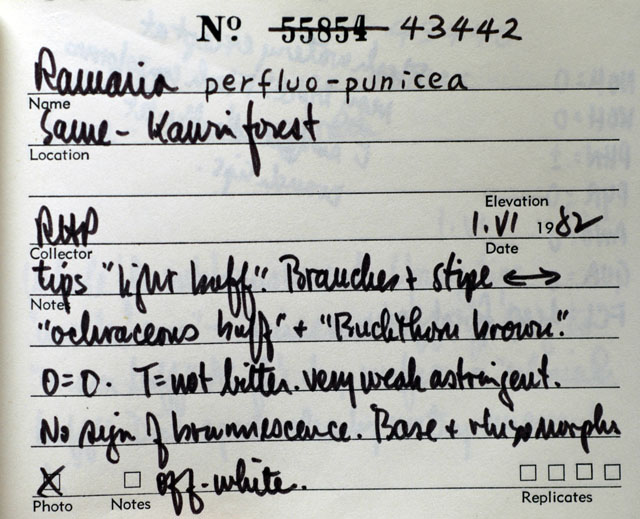 Nº 55854 43442
Ramaria perfluo-punicea
Name
Same - Kauri forest
Location
Elevation
RHP 1.VI 1982
Collector Date
tips "light buff". Branches + stipe ↔
Notes
"ochraceous buff" + "Buckthorn brown".
O=O. T=not bitter. very weak astringent.
No sign of brunnescence. Base + rhizomorphs
off-white.
Photo Notes Replicates